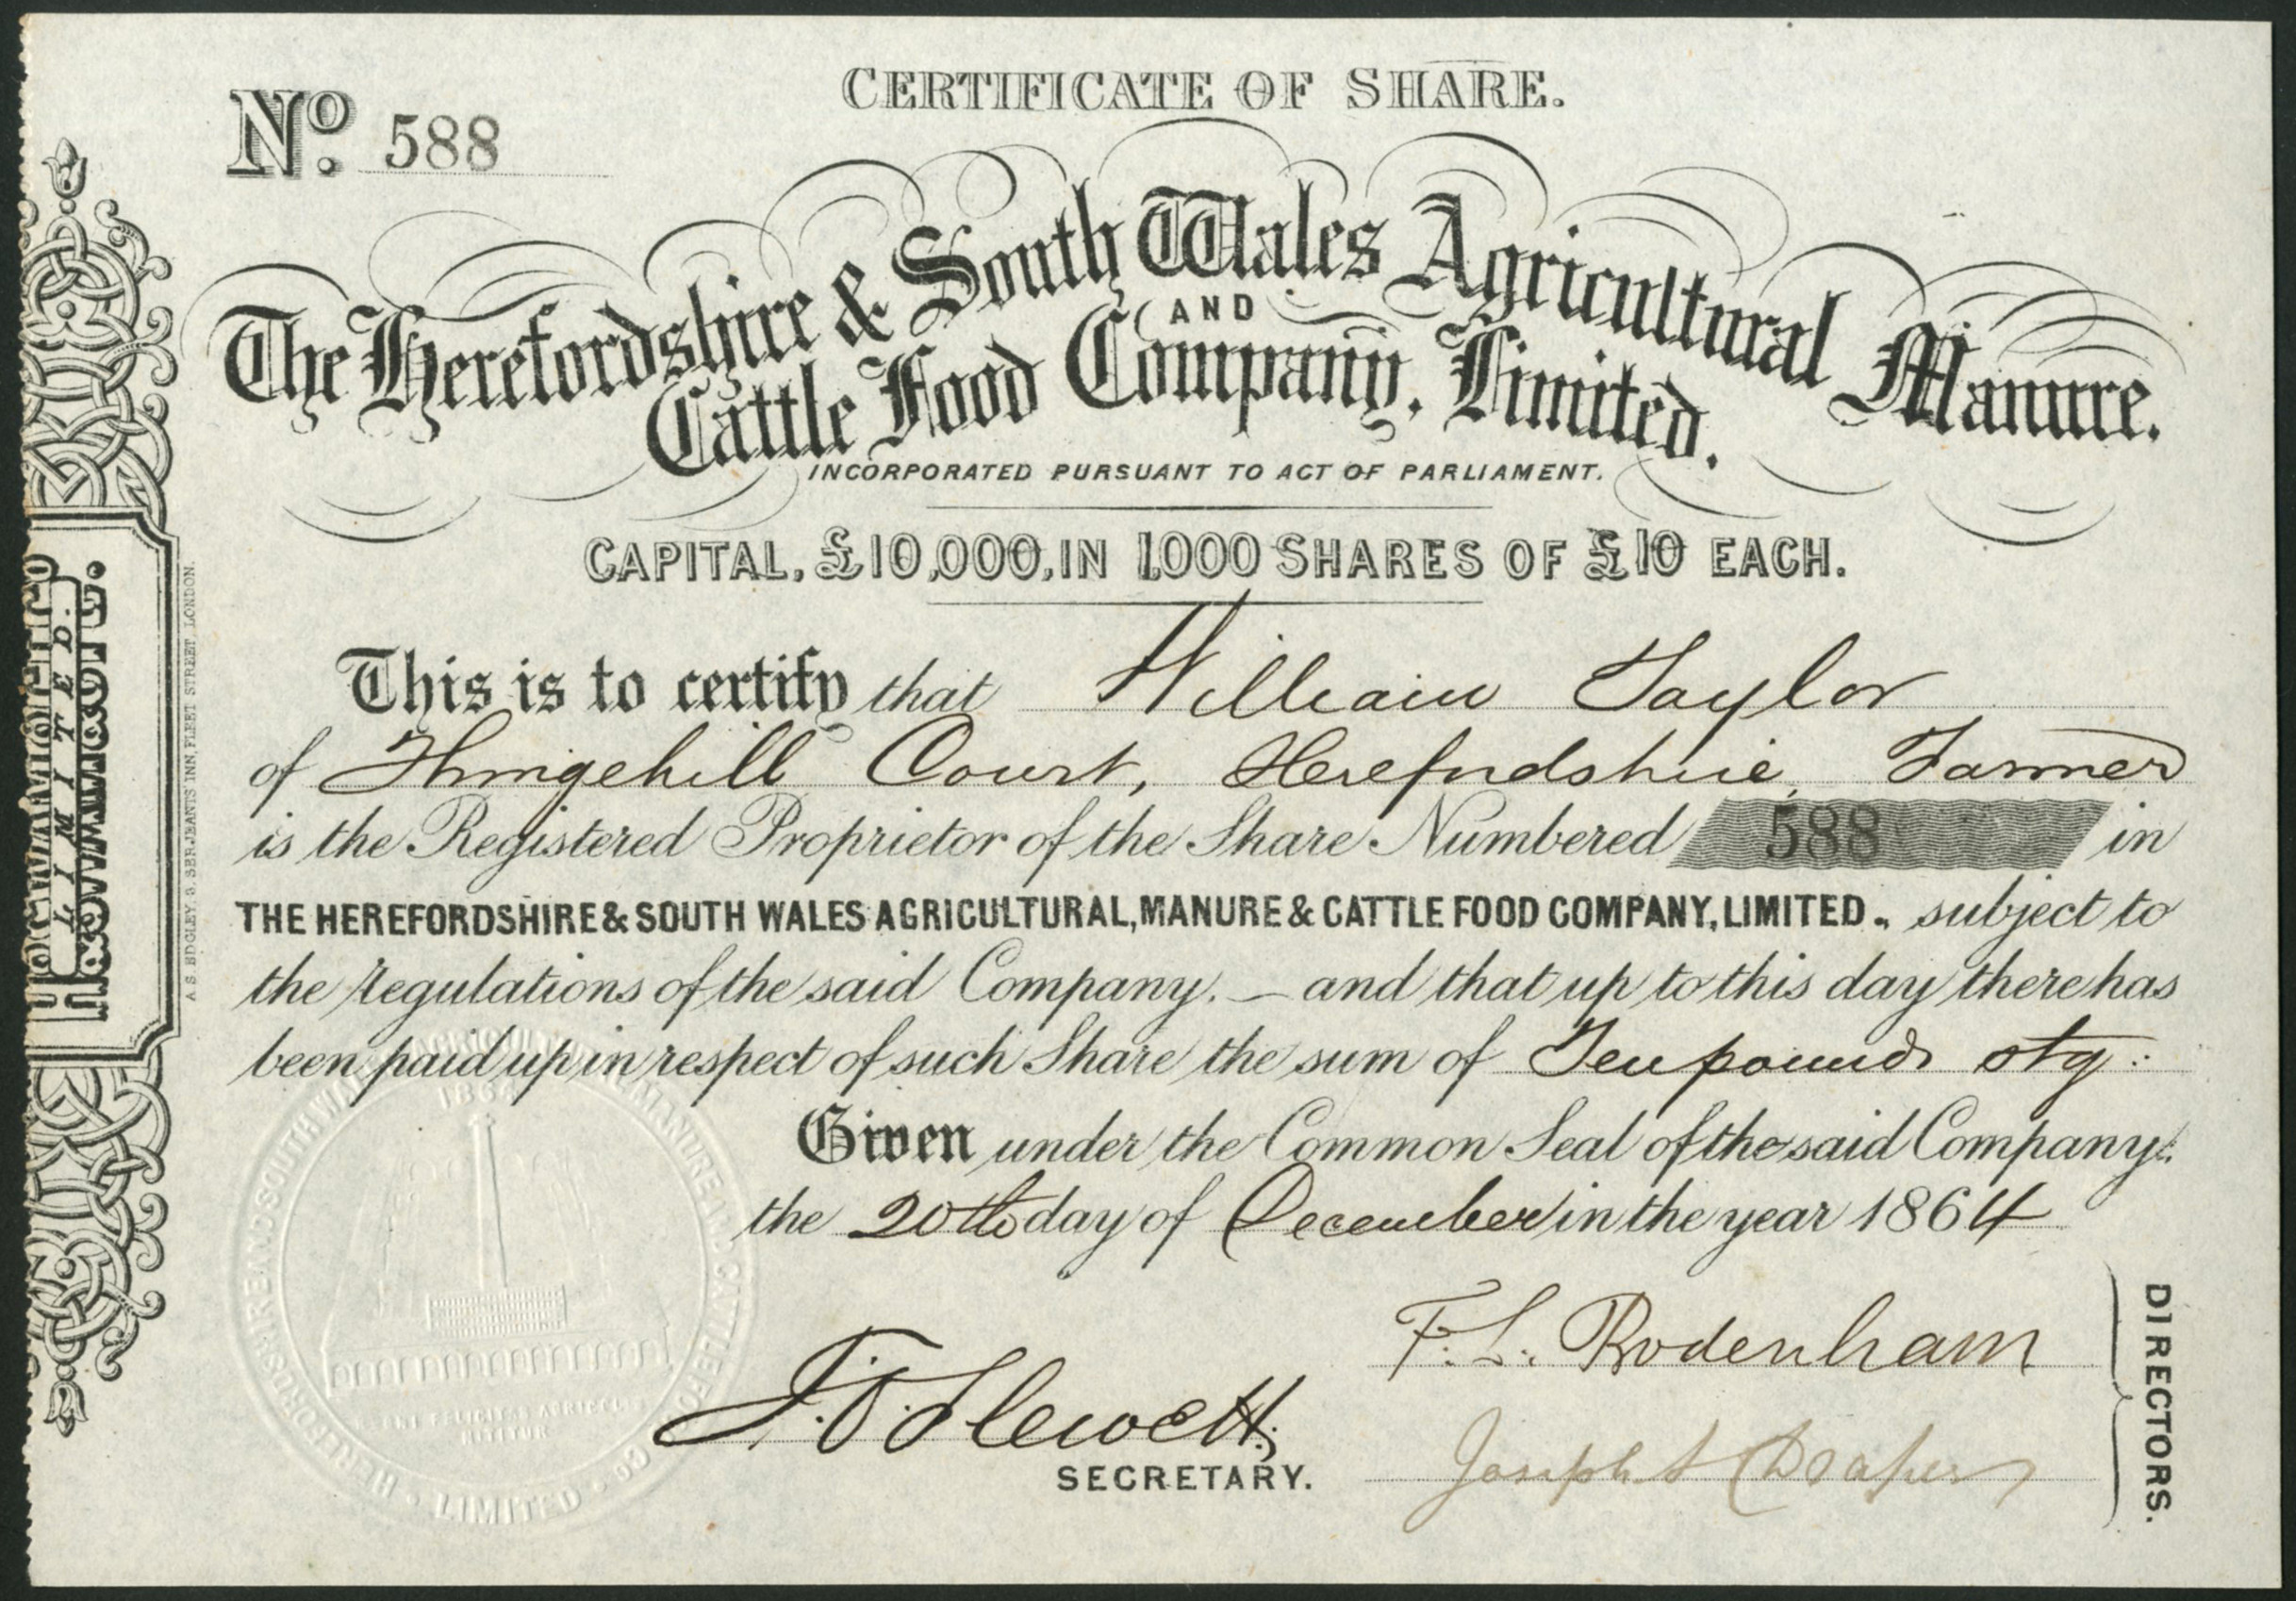 CERTIFICATE OF SHARE.
No. 588
The Herefordshire & South Wales Agricultural Manure.
AND
Cattle Food Company, Limited.
INCORPORATED PURSUANT TO ACT OF PARLIAMENT.
CAPITAL, £10,000, IN 1000 SHARES OF £10 EACH.
This is to certify that William Taylor
of Thingehill Court, Herefordshire, Farmer
is the Registered Proprietor of the Share Numbered 588 in
THE HEREFORDSHIRE & SOUTH WALES AGRICULTURAL, MANURE & CATTLE FOOD COMPANY, LIMITED., subject to
the regulations of the said Company. — and that up to this day there has
been paid up in respect of such Share the sum of Ten pounds stg:
Given under the Common Seal of the said Company,
the 20th day of December in the year 1864
F. L. Bodenham
Joseph Draper
DIRECTORS.
SECRETARY.
LIMITED.
A. S. EDGLEY, 3, SERJEANTS INN, FLEET STREET, LONDON.
HEREFORDSHIRE AND SOUTH WALES AGRICULTURAL MANURE AND CATTLE FOOD CO
LIMITED · HEREFORD